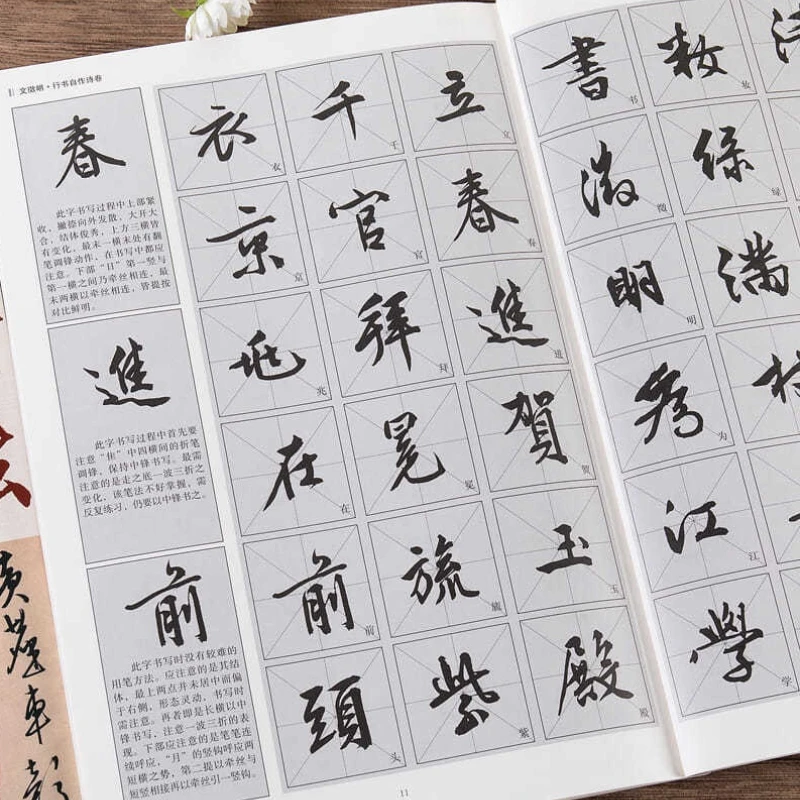 文徵明·行书自作诗卷
春
此字书写过程中上部紧
收，撇捺向外发散，大开大
合，结体俊秀，上方三横皆
有变化，最末一横末处有翻
笔调锋动作，在书写中都应
注意。下部“日”第一竖与
第一横之间乃牵丝相连，最
末两横以牵丝相连，皆提按
对比鲜明。
進
此字书写过程中首先要
注意“隹”中四横间的折笔
调锋，保持中锋书写。最需
注意的是走之底一波三折之
变化，该笔法不好掌握，需
反复练习，仍要以中锋书之。
前
此字书写时没有较难的
用笔方法。应注意的是其结
体，最上两点并未居中而偏
于右侧，形态灵动，书写时
需注意。再者即是长横以中
锋书写，注意一波三折的表
现。下部应注意的是笔笔连
续呼应，“月”的竖钩呼应两
短横之势，第二提以牵丝与
短竖相接再以牵丝引一竖钩。
立 立
春 春
進 进
賀 贺
玉 玉
殿 殿
千 千
官 官
拜 拜
冕 冕
旒 旒
紫 紫
衣 衣
京 京
兆 兆
在 在
前 前
頭 头
11
敕 敕
綠 绿
滿
書 书
徵 徵
明 明
為 为
江 江
學 学